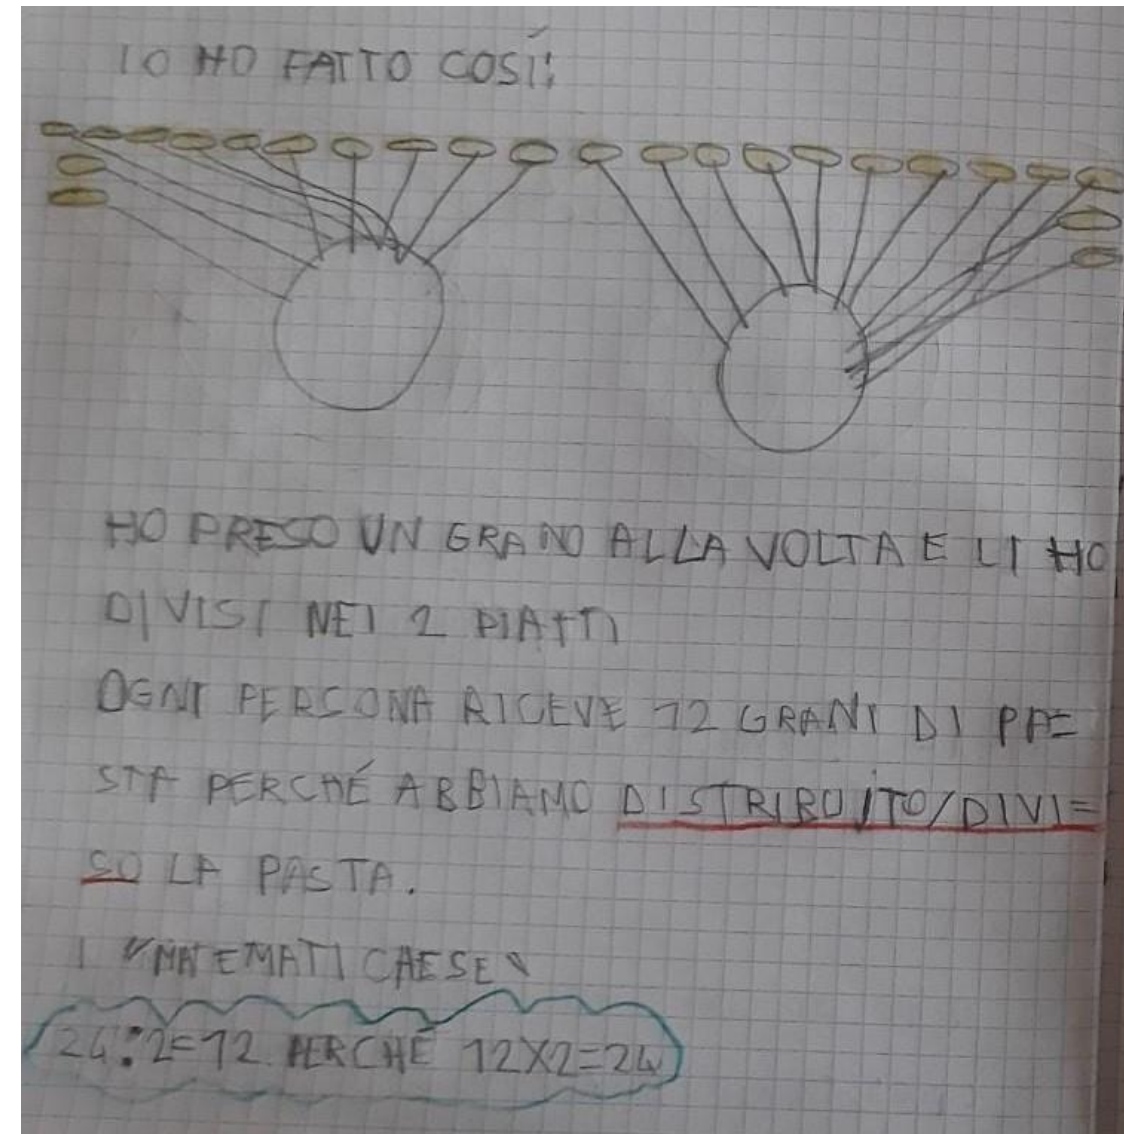 IO HO FATTO COSÍ:
HO PRESO UN GRANO ALLA VOLTA E LI HO
DIVISI NEI 2 PIATTI
OGNI PERSONA RICEVE 12 GRANI DI PA=
STA PERCHÉ ABBIAMO DISTRIBUITO/DIVI=
SO LA PASTA.
I "MATEMATICAESE"
24:2=12 PERCHÉ 12X2=24